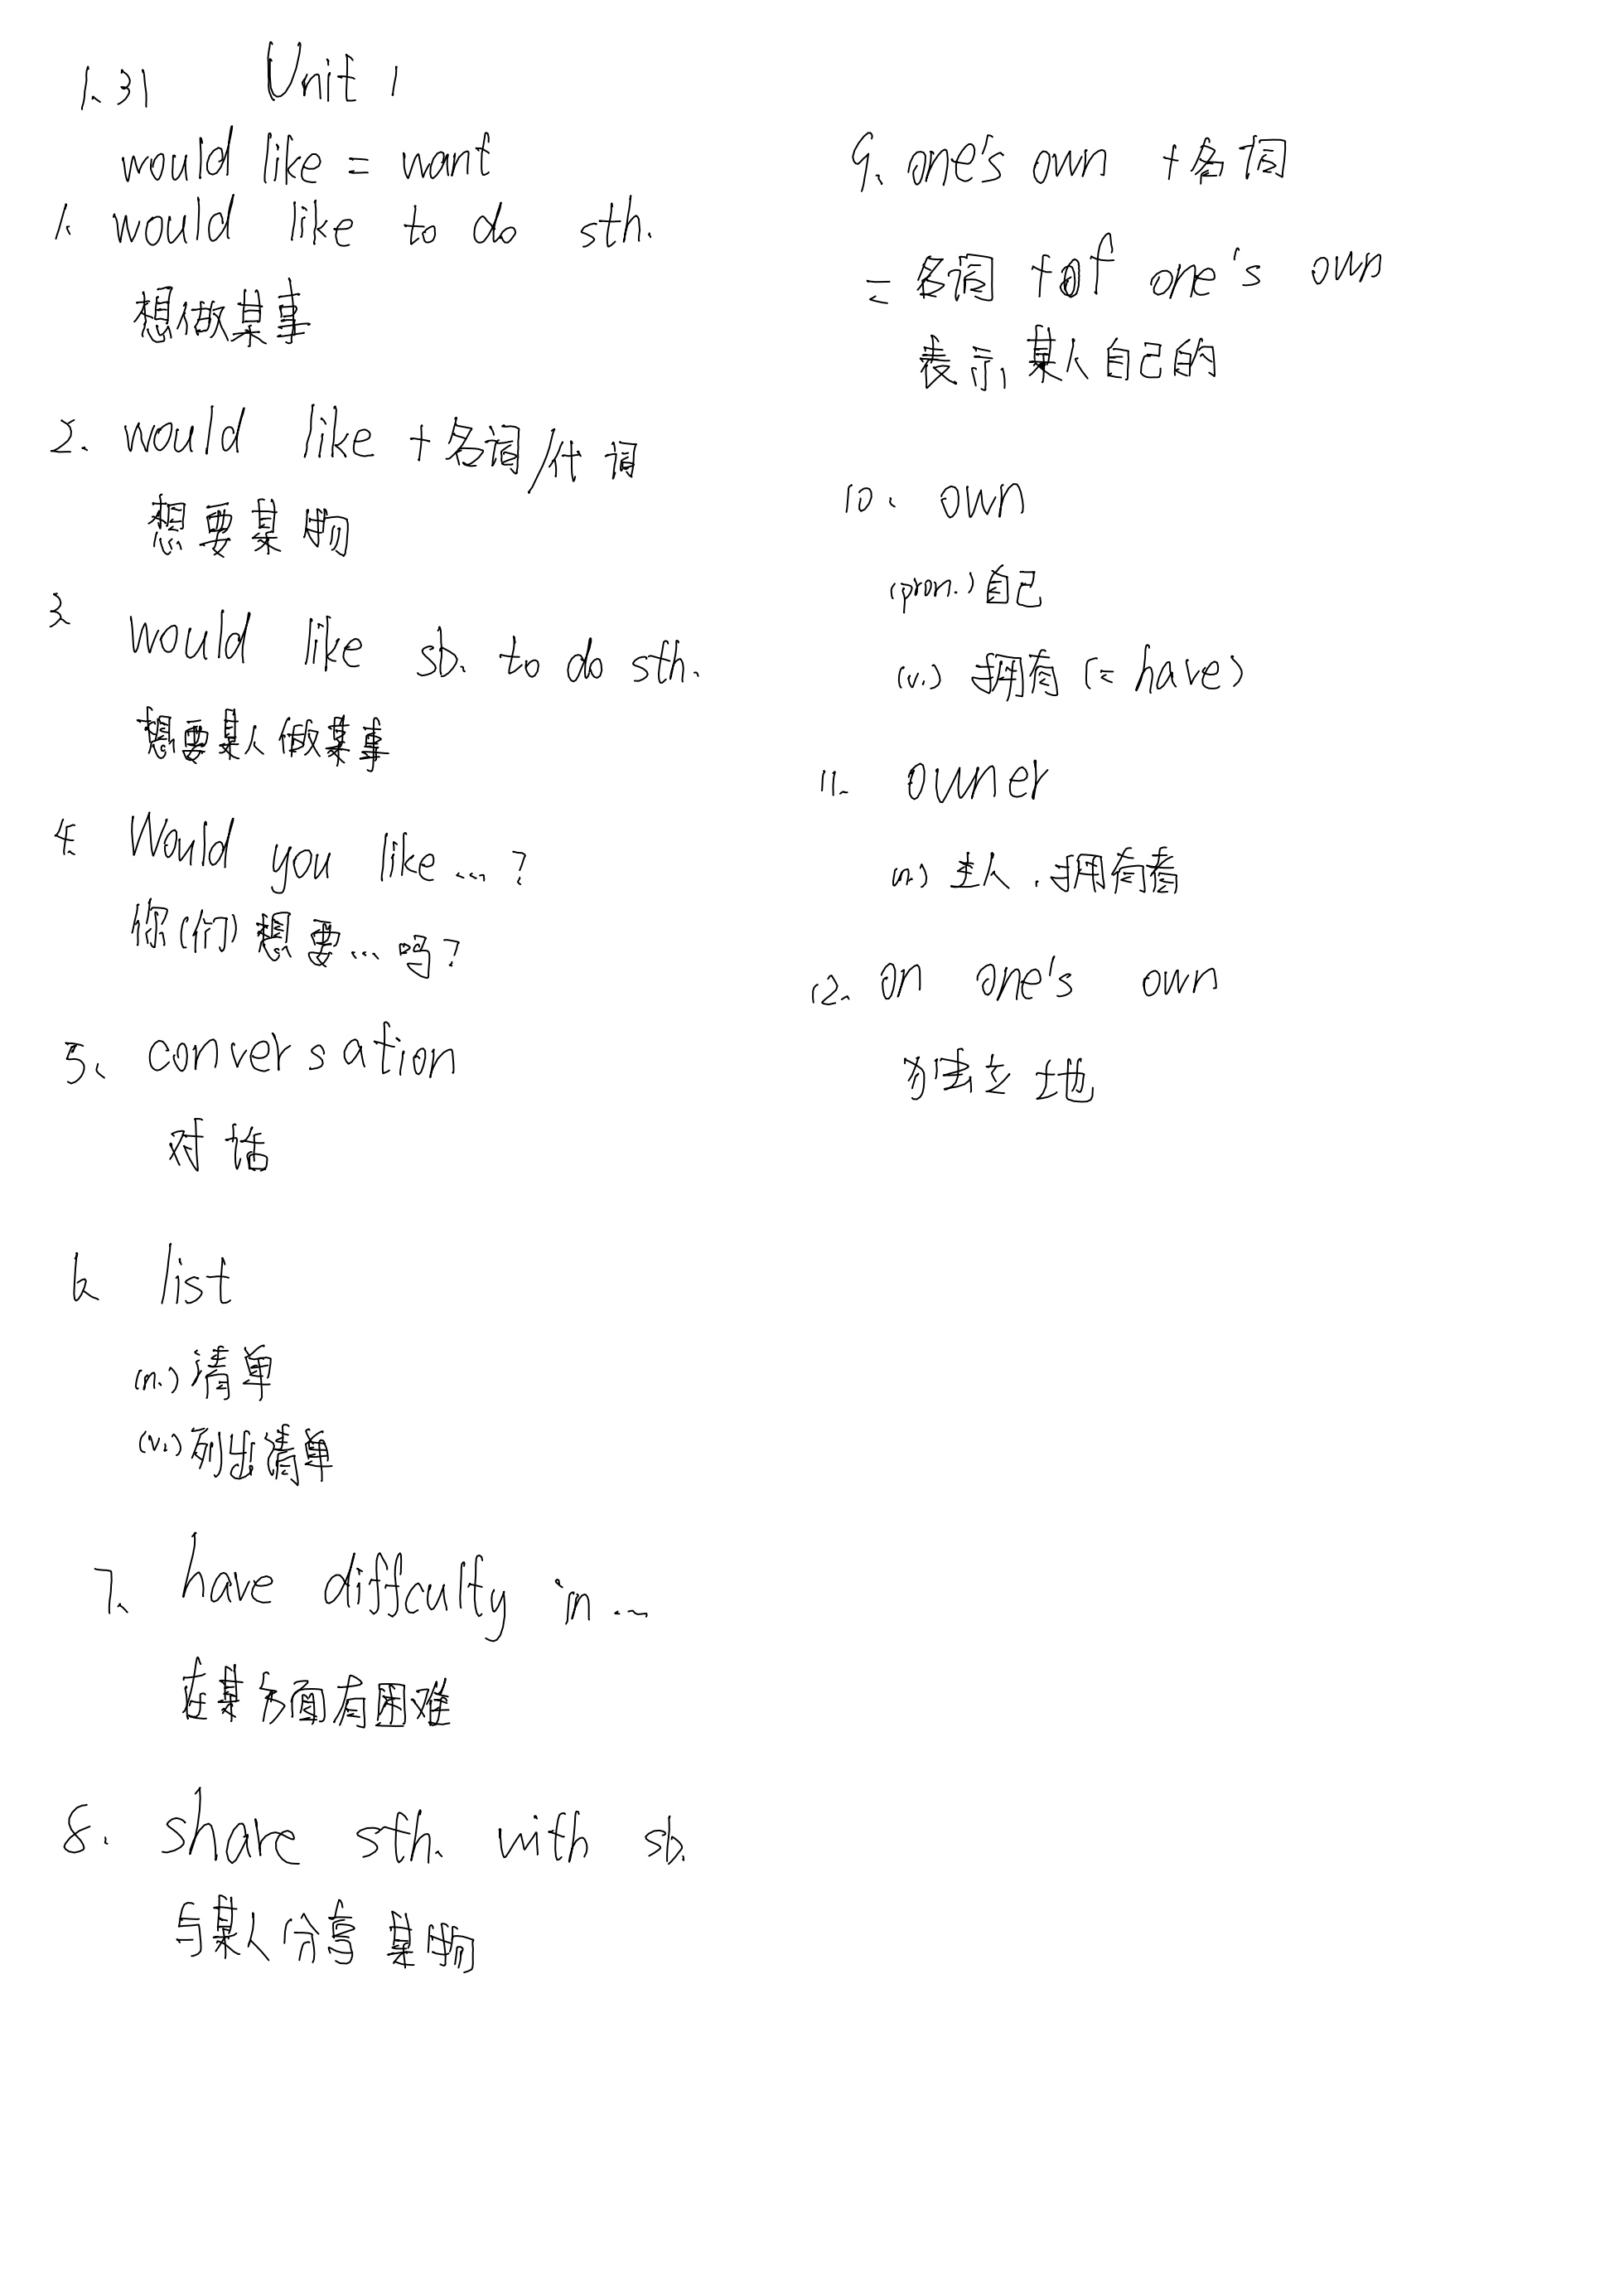 1.31 Unit 1
would like = want
1. would like to do sth.
想做某事
2. would like +名词/代词
想要某物
3.
would like sb. to do sth.
想要某人做某事
4. Would you like...?
你(们)想要...吗?
5. conversation
对话
6. list
(n.)清单
(v.)列出清单
7. have diffculty in...
在某方面有困难
8. share sth. with sb.
与某人分享某物
9. one's own +名词
=名词 +of one's own
表示某人自己的
10. own
(pron.)自己
(v.) 拥有 (= have)
11. owner
(n.) 主人.拥有者
12. on one's own
独立地